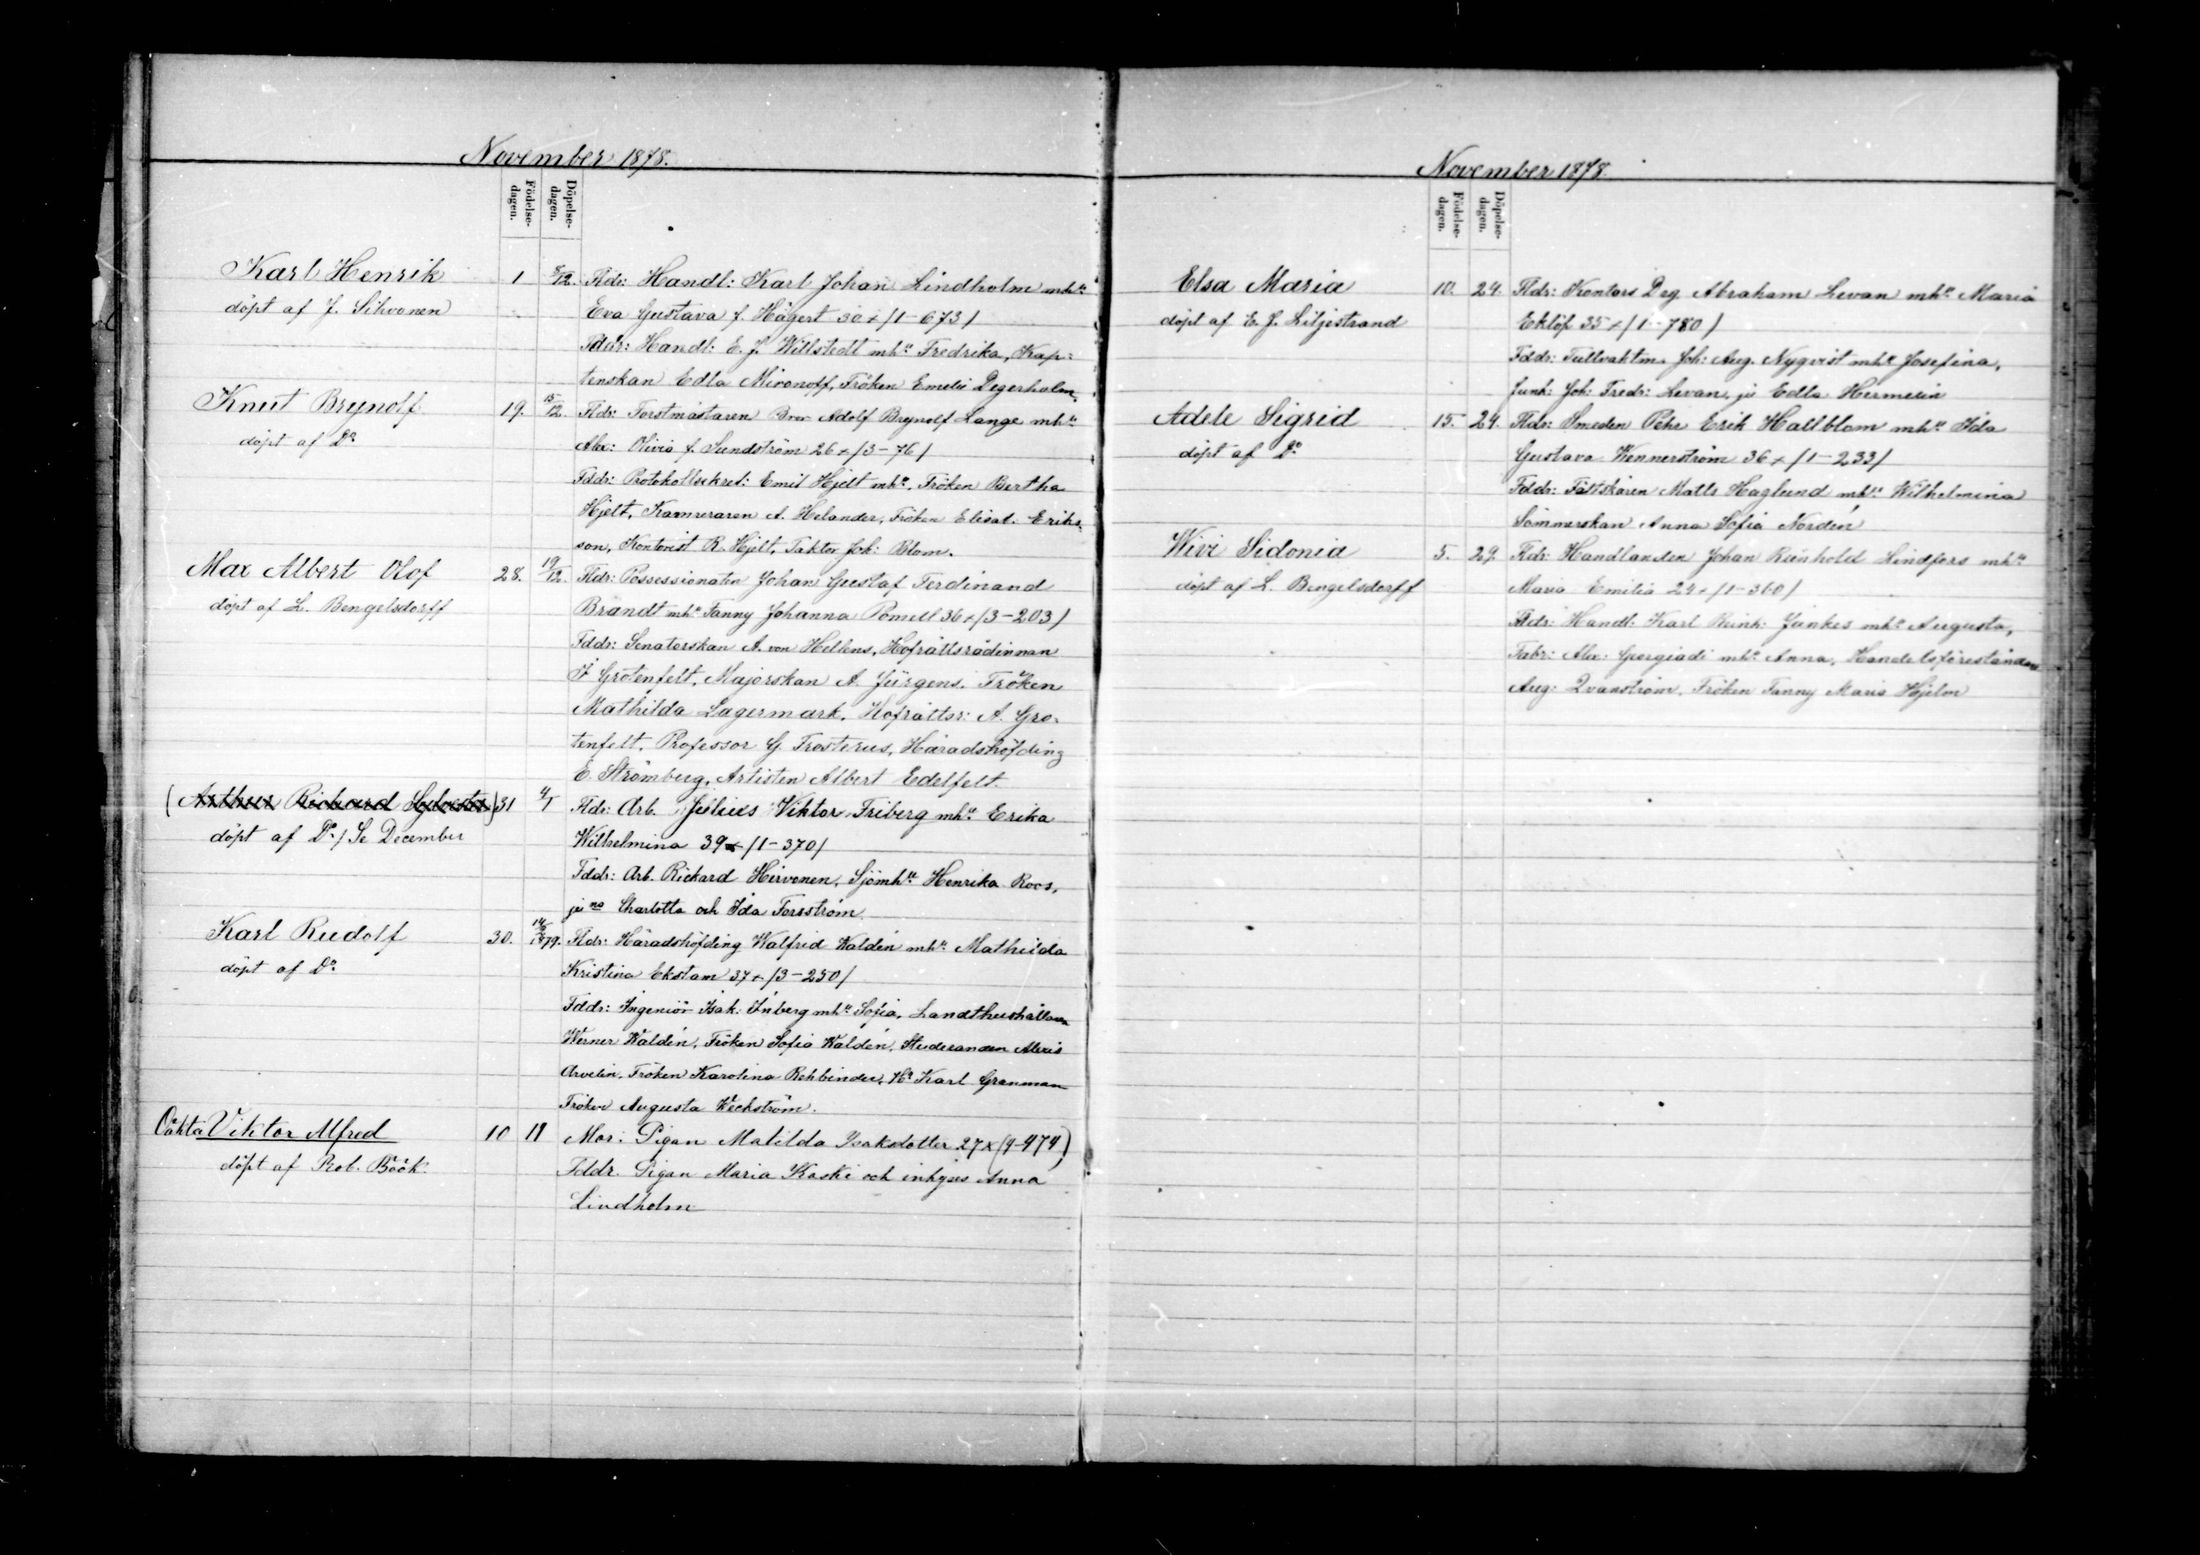 November 1878.
Födelse-
dagen.
Döpelse-
dagen.
Karl Henrik 1 8/12. Fldr: Handl: Karl Johan Lindholm mhu
döpt af J. Sihvonen Eva Gustava f. Hägert 30 + /1-673/
Fddr: Handl: E. J. Willstedt mhu Fredrika, Kap-
tenskan Edla Mironoff, Fröken Emelie Degerholm
Knut Brynolf 19. 15/12. Fldr: Forstmästaren Adolf Brynolf Lange mhu
döpt af Do Alex: Olivia f. Sundström 26 + /3-76/
Fddr: Protokollsekret: Emil Hjelt mhu, Fröken Bertha
Hjelt, Kamreraren A. Helander, Fröken Elisab. Eriks-
son, Kontorist R. Hjelt, Faktor Joh: Blom.
Max Albert Olof 28. 19/12. Fldr: Possessionaten Johan Gustaf Ferdinand
döpt af L. Bengelsdorff Brandt mhu Fanny Johanna Pomell 36 + /3-203/
Fddr: Senatorskan A. von Hellens, Hofrättsrådinnan
F. Grotenfelt, Majorskan A. Jürgens, Fröken
Mathilda Lagermark, Hofrättsr: A. Gro-
tenfelt, Professor G. Frosterus, Häradshöfding
E. Strömberg, Artisten Albert Edelfelt.
(Arthur Rickard Sylvester) 31 4/1 Fldr: Arb. Julius Viktor Friberg mhu Erika
döpt af Do / Se December Wilhelmina 39 + /1-370/
Fddr: Arb. Rickard Hirvonen, Sjömhu Henrika Roos,
pi no Charlotta och Ida Forsström
Karl Rudolf 30. 14/2 1879. Fldr: Häradshöfding Walfrid Waldén mhu Mathilda
döpt af Do Kristina Ekstam 37 + /3-250/
Fddr: Ingeniör Isak: Inberg mhu Sofia, Landthushållaren
Werner Waldén, Fröken Sofia Waldén, Studeranden Alexis
Arvelin, Fröken Karolina Rehbinder, Hr Karl Granman
Fröken Augusta Weckström.
Oäkta Viktor Alfred 10 11 Mor: Pigan Matilda Isaksdotter 27 x (4-474)
döpt af Rob. Böök. Fddr. Pigan Maria Koski och inhyses Anna
Lindholm
November 1878.
Födelse-
dagen.
Döpelse-
dagen.
Elsa Maria 10. 24. Fldr: Kontors Deg. Abraham Levan mhu Maria
döpt af E. J. Liljestrand Eklöf 35 + /1-780/
Fddr: Tullvaktm. Joh: Aug. Nyqvist mhu Josefina,
Junk: Joh: Fredr: Levan, pi Edla Hermelin
Adele Sigrid 15. 24. Fldr: Smeden Pehr Erik Hallblom mhu Ida
döpt af Do Gustava Wennerström 36 + /1-233/
Fddr: Fältskären Matts Haglund mhu Wilhelmina
Sömmerskan Anna Sofia Nordén
Wivi Sidonia 5. 29. Fldr: Handlanden Johan Reinhold Lindfors mhu
döpt af L. Bengelsdorff Maria Emilia 24 + /1-360/
Fddr: Handl: Karl Reinh: Jankes mhu Augusta,
Fabr: Alex: Georgiadi mhu Anna, Handelsföreståndaren
Aug: Qvarnström, Fröken Fanny Maria Hjelm